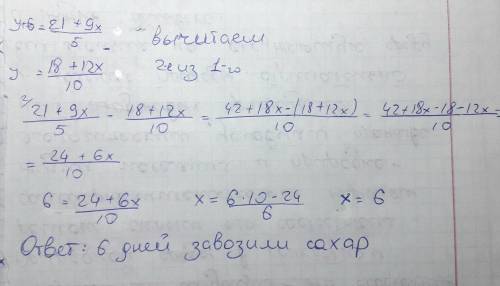 y+6 = (21 + 9x)/5 - вычитаем
y = (18 + 12x)/10 2е из 1-го
²/ (21 + 9x)/5 - (18 + 12x)/10 = (42 + 18x - (18 + 12x))/10 = (42 + 18x - 18 - 12x)/10 =
= (24 + 6x)/10
6 = (24 + 6x)/10 x = (6·10 - 24)/6 x = 6
Ответ: 6 дней завозили сахар